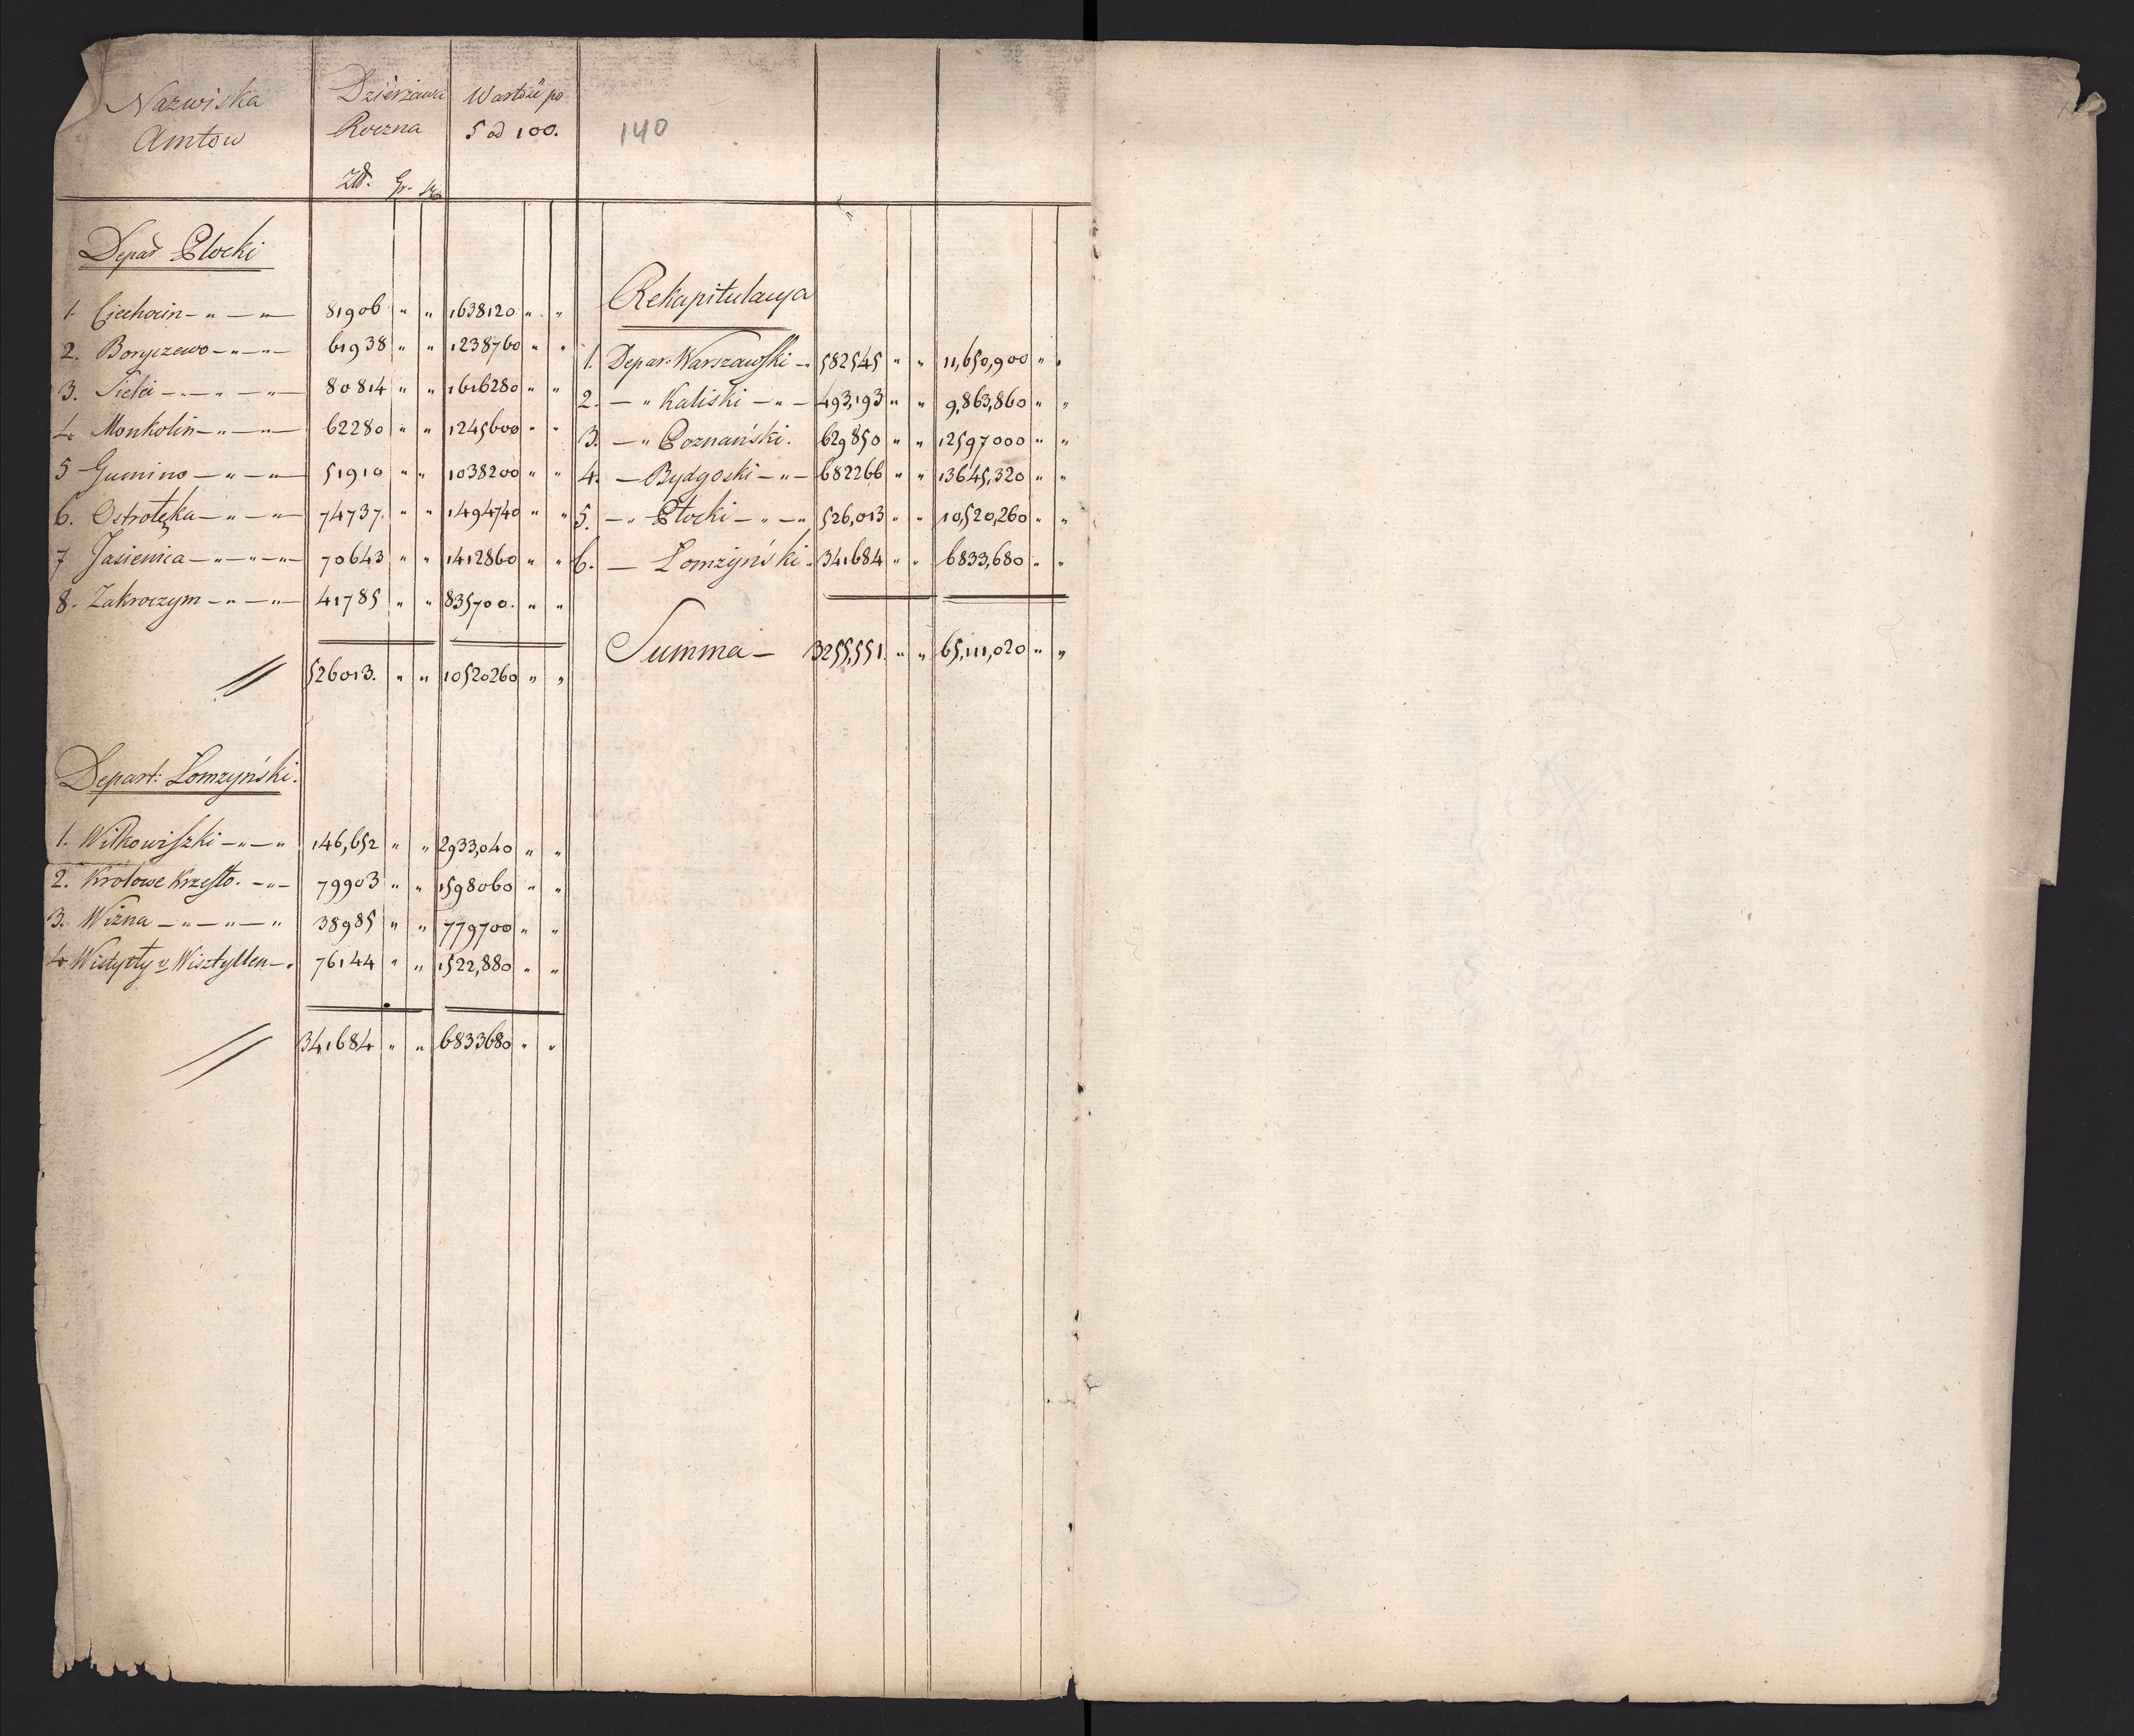 Nazwiska Amtow
Dzierżawa Roczna
Zł. Gr.
Wartość po 5 od 100.
140
Depar Płocki
1. Ciechocin - " - " - 81906 " " 1638120 " "
2. Boryszewo - " - " - 61938 " " 1238760 " "
3. Sielci - " - " - " - 80814 " " 1616280 " "
4. Monkolin - " - " - 62280 " " 1245600 " "
5 Gumino - " - " - 51910 " " 1038200 " "
6. Ostrołęka - " - " - 74737. " " 1494740 " "
7 Jasienica - " - " - " - 70643 " " 1412860 " "
8. Zakroczym - " - " - 41785 " " 835700. " "
526013. " " 10520260 " "
Depart: Łomzyński.
1. Wiłkowiszki - " - " 146,652 " " 2933,040 " "
2. Krolowe Krzesło. - " - 79903 " " 1598060 " "
3. Wizna - " - " - " 38985 " " 779700 " "
4 Wistytty v Wisztytten - " 76144 " " 1522,880 " "
341684 " " 6833680 " "
Rekapitulacya
1. Depar. Warszawski - " 582545 " " 11,650,900 " "
2. - " Kaliski - " - 493,193 " " 9,863,860 " "
3. - " Poznański. 629850 " " 12597000 " "
4. - Bydgoski - " - 682266 " " 13645,320 " "
5. - " Płocki - " - " 526,013 " " 10,520,260 " "
6. - Łomżyński " 341684 " " 6833,680 " "
Summa - 3255,551. " " 65,111,020 " "